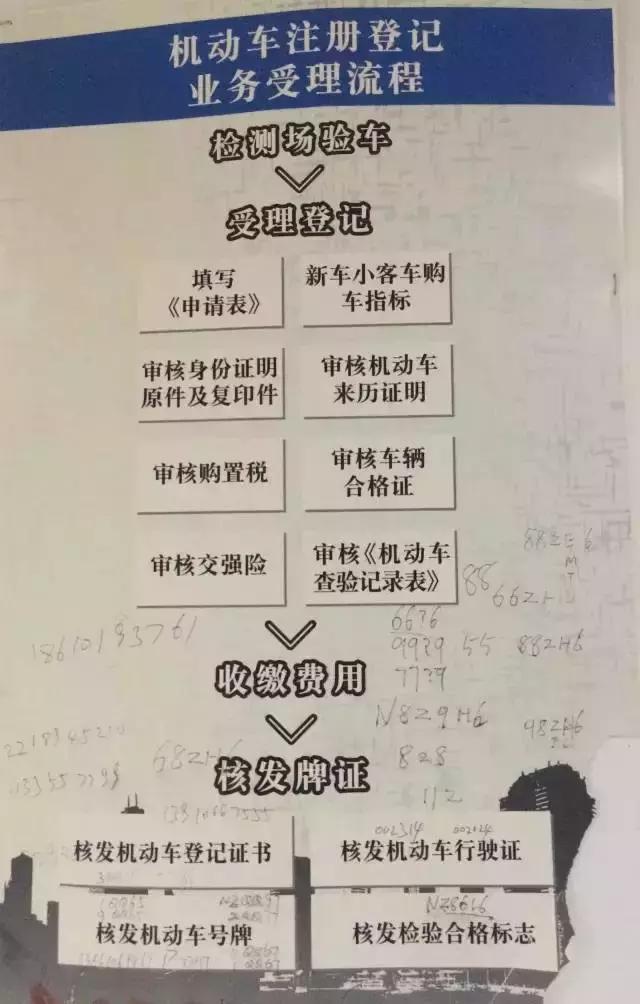 机动车注册登记
业务受理流程
检测场验车
受理登记
填写
《申请表》
新车小客车购
车指标
审核身份证明
原件及复印件
审核机动车
来历证明
审核购置税
审核车辆
合格证
审核交强险
审核《机动车
查验记录表》
88
66ZH
18610193761
66?6
99?9
55
88ZH6
77?9
收缴费用
N8Z9H6
98ZH6
68ZH6
828
112
核发牌证
002314
核发机动车登记证书
核发机动车行驶证
NZ8616
核发机动车号牌
核发检验合格标志